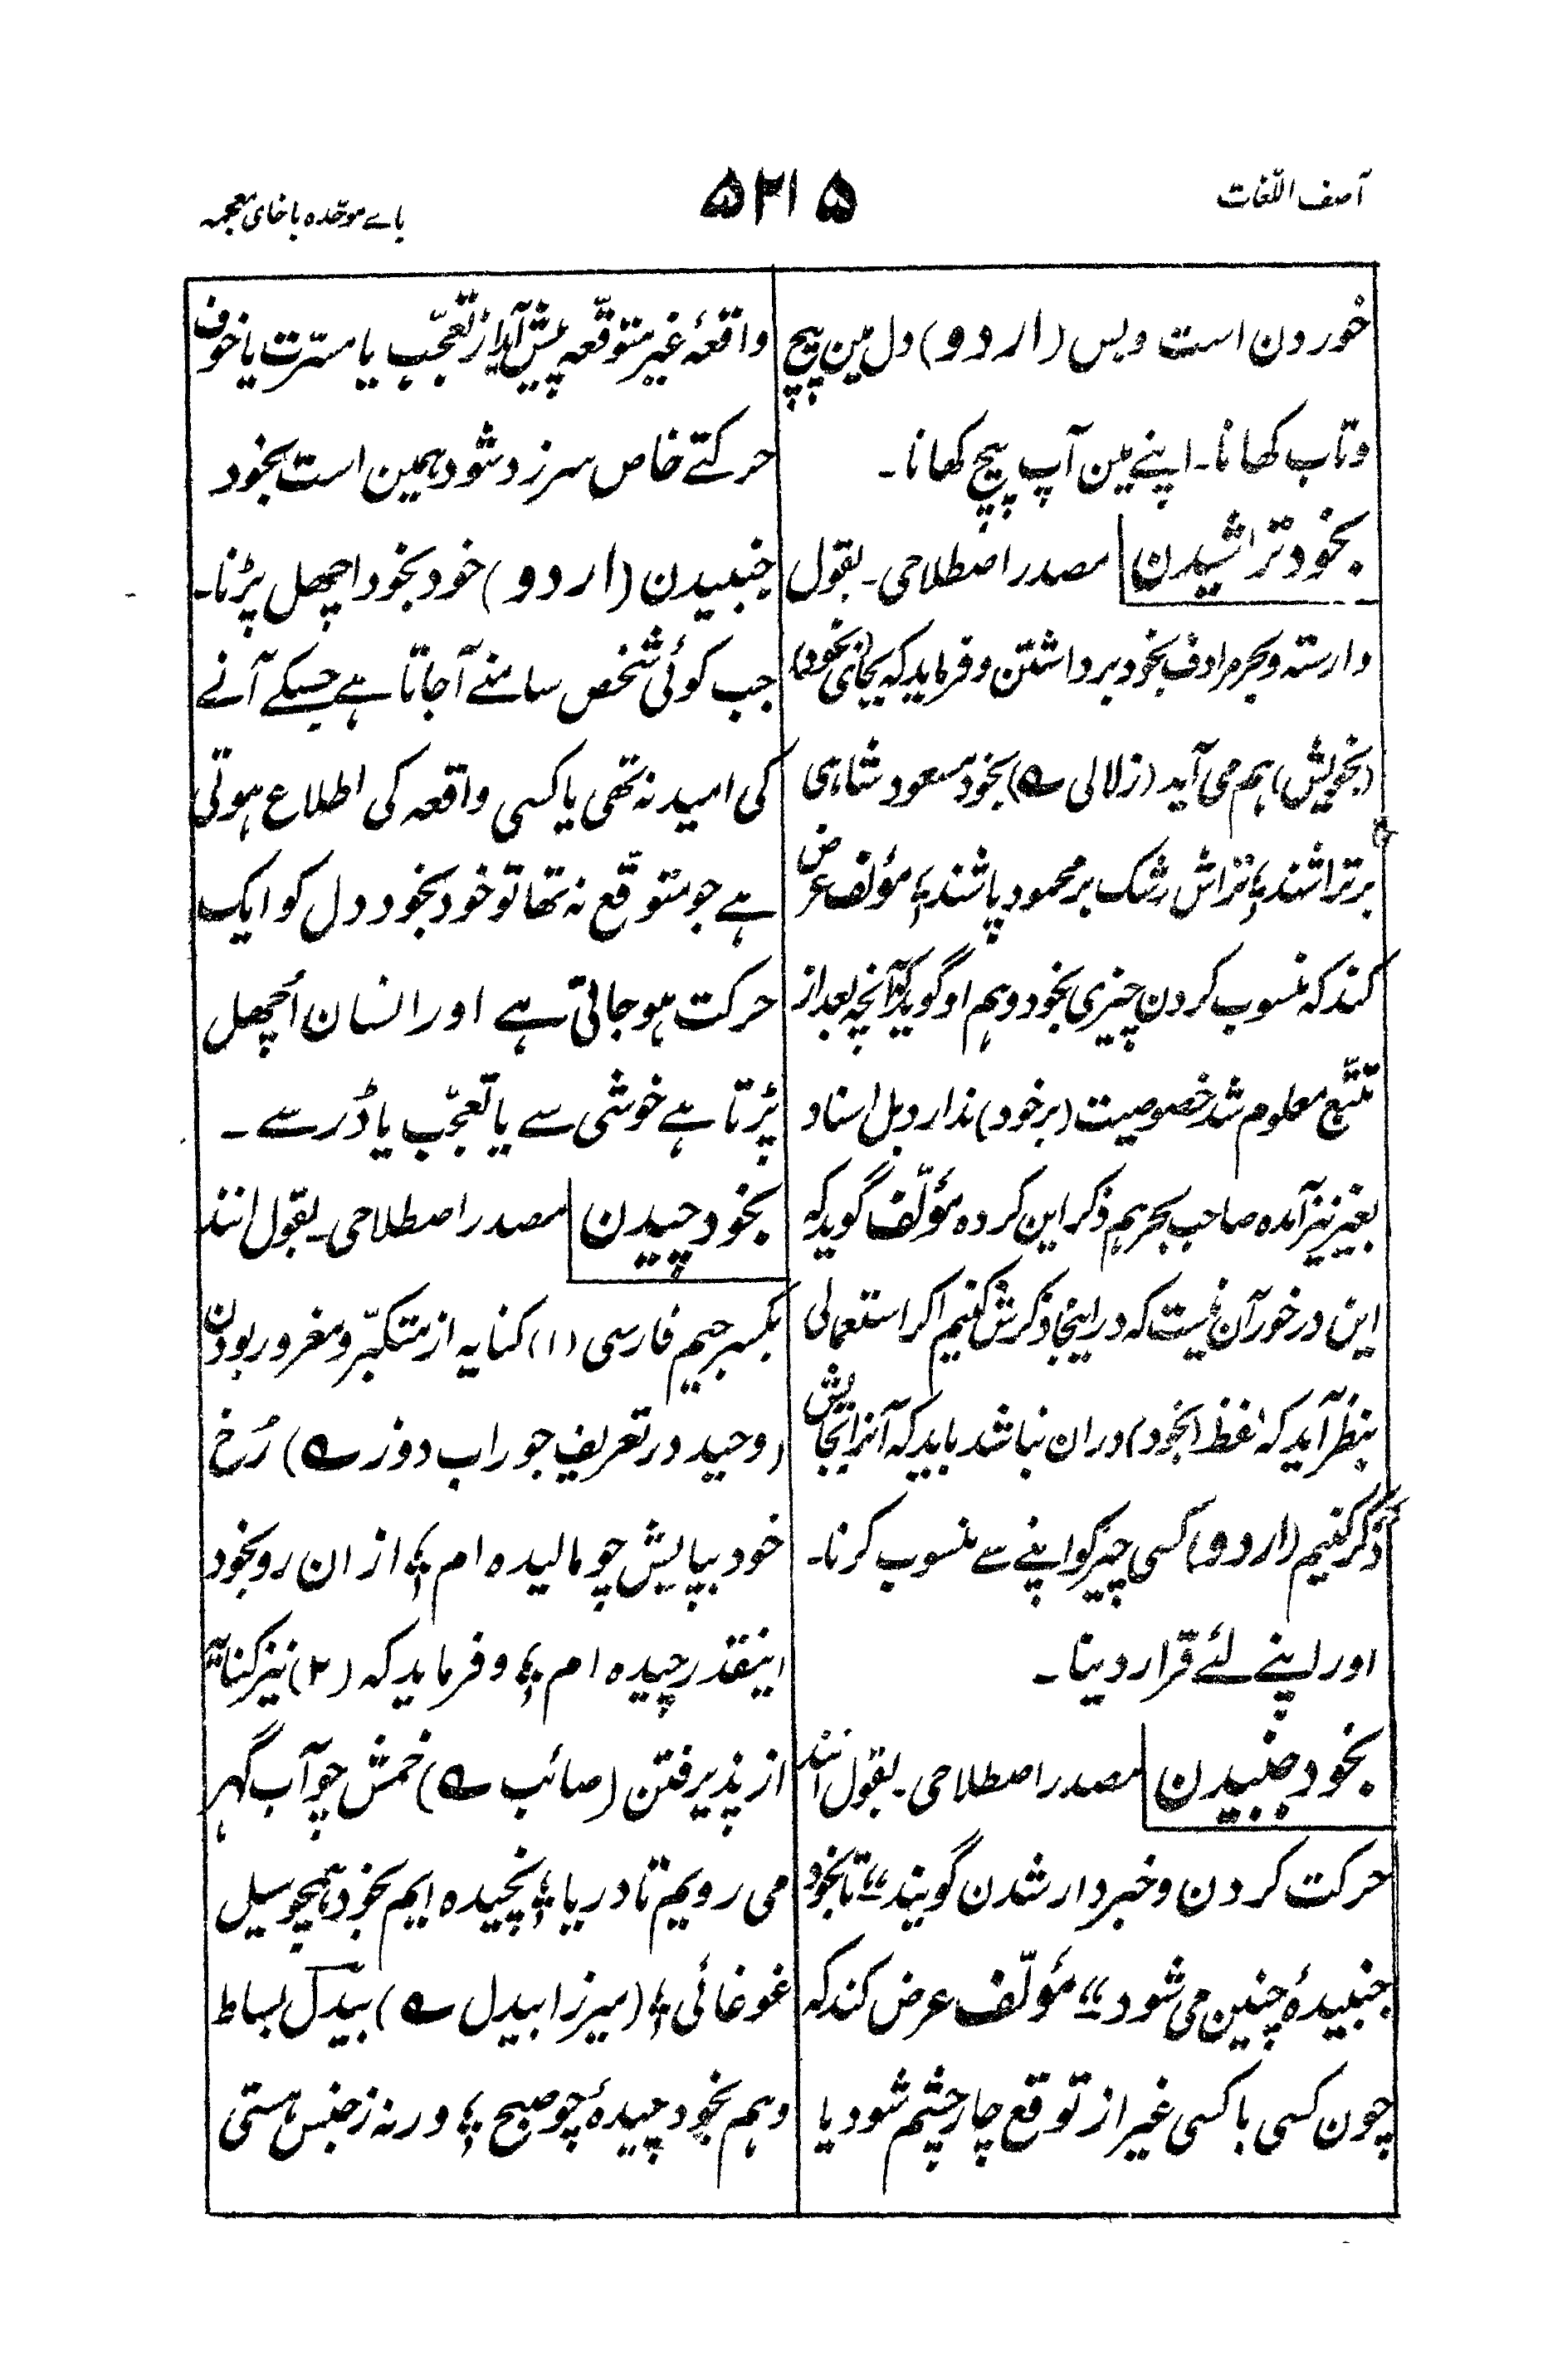 آصف اللّغات
۵۲۱۵
باے موحّدہ باخای معجمہ
خوردن است وبس (اردو) دل مین پیچ
وتاب کھانا۔ اپنے مین آپ پیچ کھانا۔
بخود تراشیدن مصدر اصطلاحی۔ بقول
وارستہ وبحر مرادف بخود برداشتن وفرماید کہ بجای (بخود)
(بخویش) ہم می آید (زلالی ؎) بخود مسعود شاہی
برتراشند ؛ تراش رشک بر محمود پاشند ؛ مؤلف عرض
کند کہ منسوب کردن چیزی بخود وہم او گوید کہ آنچہ بعد از
تتبّع معلوم شد خصوصیت (برخود) ندارد بل اسناد
بغیر نیز آمدہ صاحب بحر ہم ذکر این کردہ مؤلّف گوید کہ
این درخور آن نیست کہ دراینجا ذکرش کنیم اگر استعمالی
بنظر آید کہ لفظ (بخود) دران نباشد باید کہ آنرا بجایش
ذکر کنیم (اردو) کسی چیز کو اپنے سے منسوب کرنا۔
اور اپنے لئے قرار دینا۔
بخود جنبیدن مصدر اصطلاحی۔ بقول انند
حرکت کردن وخبردار شدن گویند "تا بخود
جنبیدۂ چنین می شود" مؤلّف عرض کند کہ
چون کسی با کسی غیر از توقع چار چشم شود یا
واقعۂ غیر متوقّعہ پیش آید از تعجّب یا مسرّت یا خوف
حرکتے خاص سرزد شود ہمین است بخود
جنبیدن (اردو) خود بخود اچھل پڑنا۔
جب کوئی شخص سامنے آجاتا ہے جسکے آنے
کی امید نہ تھی یا کسی واقعہ کی اطلاع ہوتی
ہے جو متوقّع نہ تھا تو خود بخود دل کو ایک
حرکت ہو جاتی ہے اور انسان اُچھل
پڑتا ہے خوشی سے یا تعجّب یا ڈر سے ۔
بخود چیدن مصدر اصطلاحی۔ بقول انند
بکسر جیم فارسی (۱) کنایہ از متکبّر و مغرور بودن
(وحید در تعریف جوراب دوز ؎) رُخ
خود بپایش چو مالیدہ ام ؛ از ان رو بخود
اینقدر چیدہ ام ؛ وفرماید کہ (۲) نیز کنایہ
از پذیرفتن (صائب ؎) خمش چو آب گہر
می رویم تا دریا ؛ نچیدہ ایم بخود ہمچو سیل
غوغائی ؛ (میرزا بیدل ؎) بیدل بساط
وہم بخود چیدۂ چو صبح ؛ ورنہ ز جنس ہستی